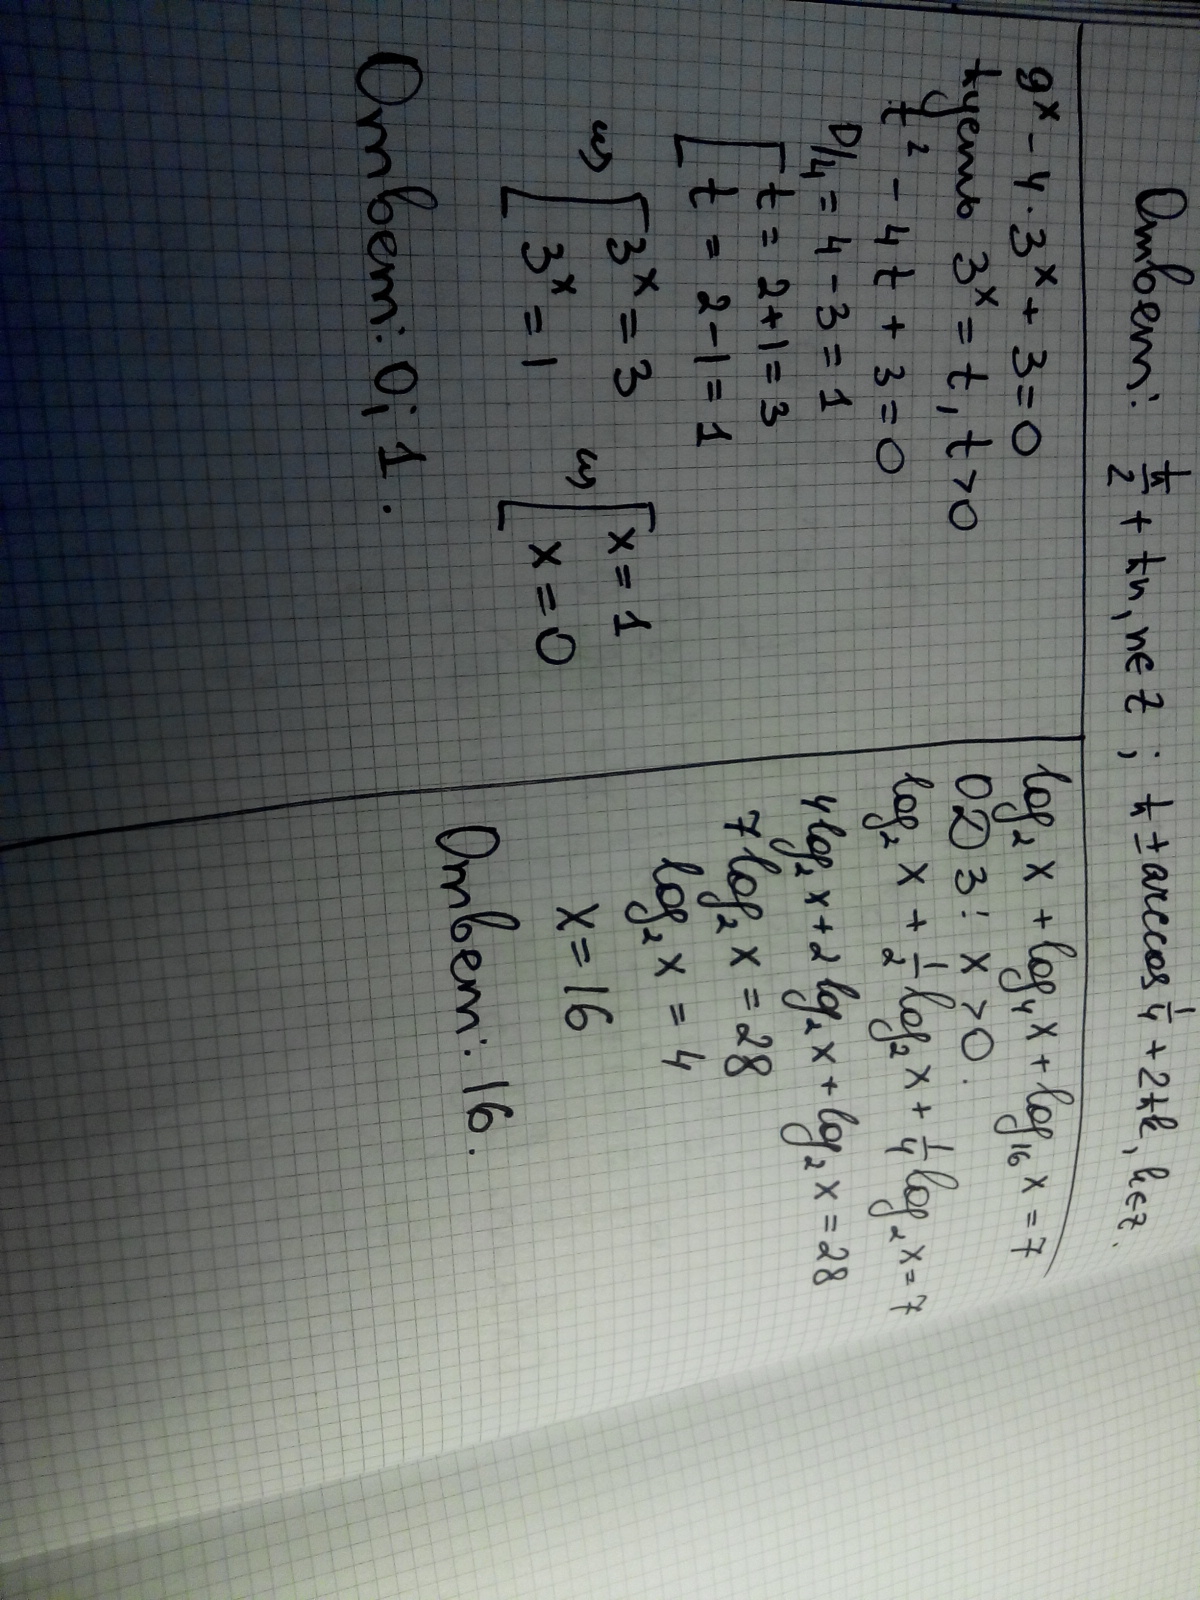 Ответ: π/2 + πn, n∈Z; π ± arccos 1/4 + 2πk, k∈Z.
9ˣ - 4·3ˣ + 3 = 0
Пусть 3ˣ = t, t > 0
t² - 4t + 3 = 0
D/4 = 4 - 3 = 1
[ t = 2+1 = 3
t = 2-1 = 1
⇔ [ 3ˣ = 3 ⇔ [ x = 1
3ˣ = 1 x = 0
Ответ: 0; 1.
log₂ x + log₄ x + log₁₆ x = 7
ОДЗ: x > 0.
log₂ x + 1/2 log₂ x + 1/4 log₂ x = 7
4 log₂ x + 2 log₂ x + log₂ x = 28
7 log₂ x = 28
log₂ x = 4
x = 16
Ответ: 16.